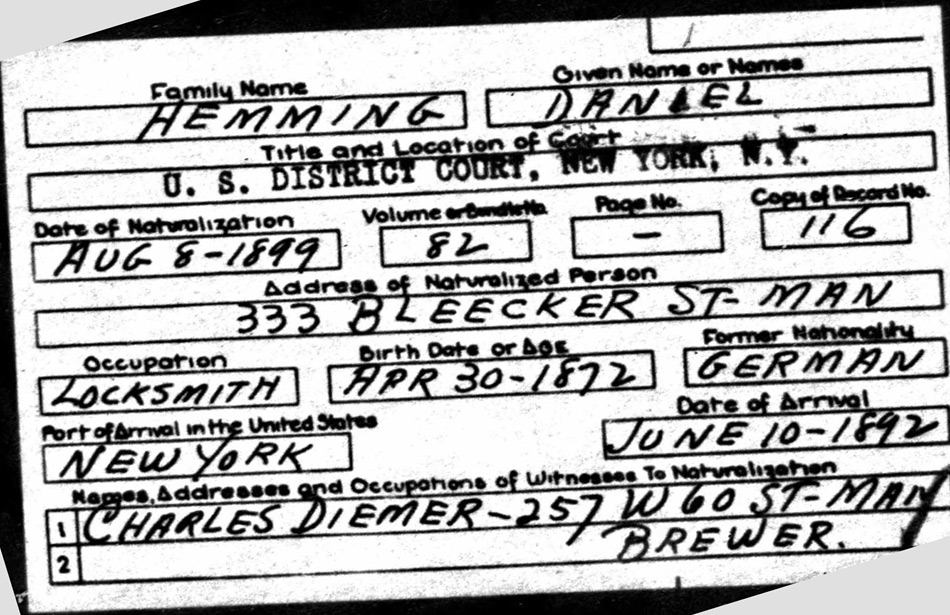 Family Name Given Name or Names
HEMMING DANIEL
Title and Location of Court
U. S. DISTRICT COURT, NEW YORK, N.Y.
Date of Naturalization Volume or Bundle No. Page No. Copy of Record No.
AUG 8-1899 82 — 116
Address of Naturalized Person
333 BLEECKER ST- MAN
Occupation Birth Date or Age Former Nationality
LOCKSMITH APR 30-1872 GERMAN
Port of Arrival in the United States Date of Arrival
NEW YORK JUNE 10-1892
Names, Addresses and Occupations of Witnesses To Naturalization
1 CHARLES DIEMER - 257 W 60 ST- MAN
2 BREWER.